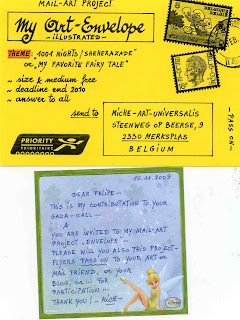 MAIL-ART PROJECT
My Art-Envelope
-ILLUSTRATED-
THEME: 1001 NIGHTS/SHEHERAZADE"
or "MY FAVORITE FAIRY TALE"
~ size & medium free
~ deadline end 2010
~ answer to all
send to
MICHE-ART-UNIVERSALIS
STEENWEG OP BEERSE, 9
2330 MERKSPLAS
BELGIUM
PRIORITY
PRIORITAIRE
-PASS ON-
10.11.2009
DEAR FELIPE-
THIS IS MY CONTRIBUTATION TO YOUR
GAZA-CALL-
&
YOU ARE INVITED TO MY MAIL-ART
PROJECT "ENVELOPE"-
PLEASE WILL YOU ALSO THIS PROJECT-
FLYERS PASS ON TO YOUR ART OR
MAIL FRIEND, OR YOUR
BLOG, OR... FOR
PARTICIPATION...
THANK YOU! - MICHE-
Disney